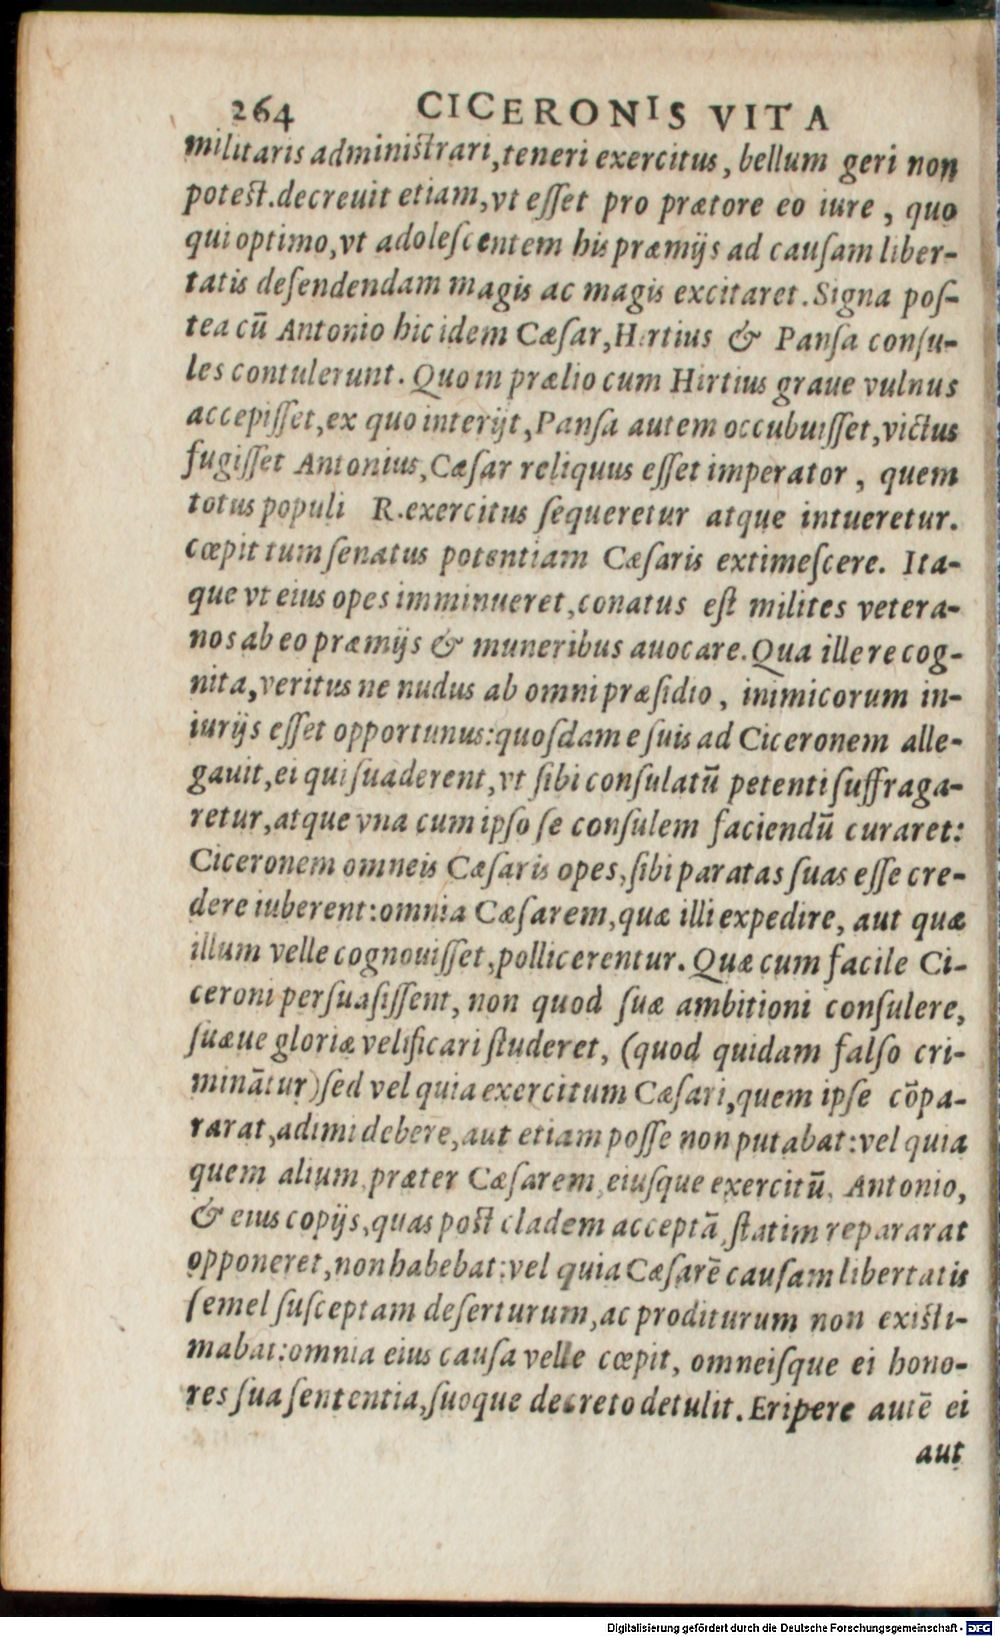 264 CICERONIS VITA
militaris administrari, teneri exercitus, bellum geri non
potest. decreuit etiam, vt esset pro prætore eo iure, quo
qui optimo, vt adolescentem his præmijs ad causam liber-
tatis defendendam magis ac magis excitaret. Signa pos-
tea cū Antonio hic idem Cæsar, Hirtius & Pansa consu-
les contulerunt. Quo in prælio cum Hirtius graue vulnus
accepisset, ex quo interijt, Pansa autem occubuisset, victus
fugisset Antonius, Cæsar reliquus esset imperator, quem
totus populi R. exercitus sequeretur atque intueretur.
cœpit tum senatus potentiam Cæsaris extimescere. Ita-
que vt eius opes imminueret, conatus est milites vetera-
nos ab eo præmijs & muneribus auocare. Qua ille re cog-
nita, veritus ne nudus ab omni præsidio, inimicorum in-
iurijs esset opportunus: quosdam e suis ad Ciceronem alle-
gauit, ei qui suaderent, vt sibi consulatū petenti suffraga-
retur, atque vna cum ipso se consulem faciendū curaret:
Ciceronem omneis Cæsaris opes, sibi paratas suas esse cre-
dere iuberent: omnia Cæsarem, quæ illi expedire, aut quæ
illum velle cognouisset, pollicerentur. Quæ cum facile Ci-
ceroni persuasissent, non quod suæ ambitioni consulere,
suæue gloriæ velificari studeret, (quod quidam falso cri-
minātur) sed vel quia exercitum Cæsari, quem ipse cōpa-
rarat, adimi debere, aut etiam posse non putabat: vel quia
quem alium, præter Cæsarem, eiusque exercitū, Antonio,
& eius copijs, quas post cladem acceptā, statim repararat
opponeret, non habebat: vel quia Cæsarē causam libertatis
semel susceptam deserturum, ac proditurum non existi-
mabat: omnia eius causa velle cœpit, omneisque ei hono-
res sua sententia, suoque decreto detulit. Eripere autē ei
aut
Digitalisierung gefördert durch die Deutsche Forschungsgemeinschaft - DFG